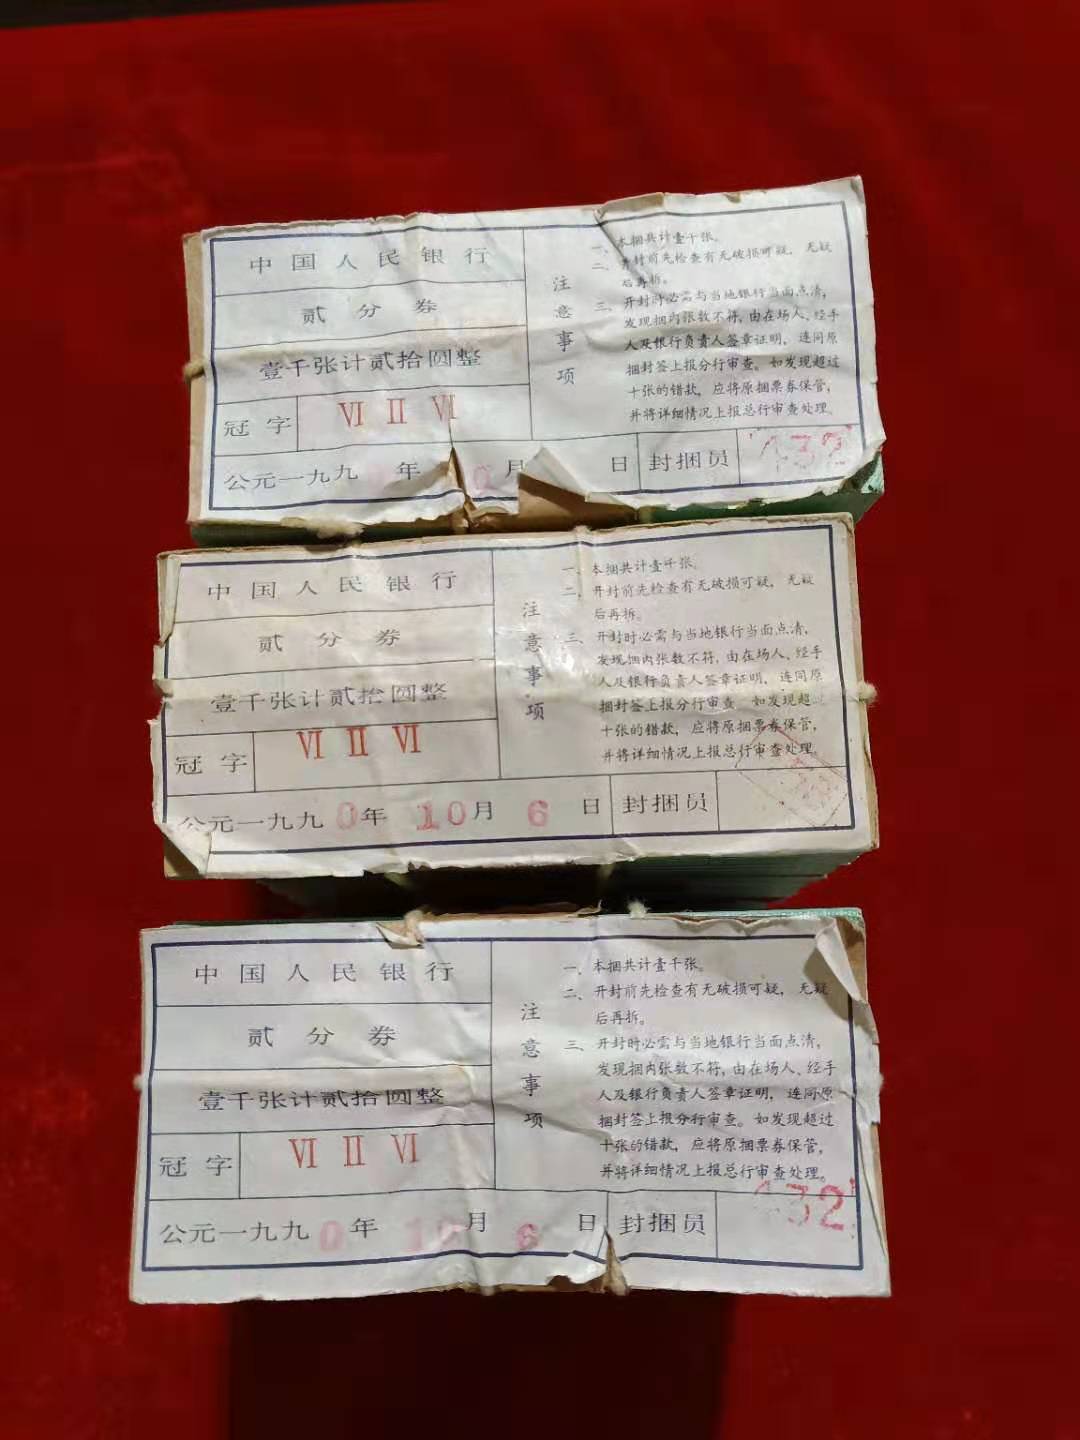 中国人民银行
贰分券
壹千张计贰拾圆整
冠字 Ⅵ Ⅱ Ⅵ
公元一九九 年 月 日 封捆员 432
注意事项
一、本捆共计壹千张。
二、开封前先检查有无破损可疑，无疑
后再拆。
三、开封时必需与当地银行当面点清，
发现捆内张数不符，由在场人、经手
人及银行负责人签章证明，连同原
捆封签上报分行审查。如发现超过
十张的错款，应将原捆票券保管，
并将详细情况上报总行审查处理。
中国人民银行
贰分券
壹千张计贰拾圆整
冠字 Ⅵ Ⅱ Ⅵ
公元一九九0年 10月 6日 封捆员
注意事项
一、本捆共计壹千张。
二、开封前先检查有无破损可疑，无疑
后再拆。
三、开封时必需与当地银行当面点清，
发现捆内张数不符，由在场人、经手
人及银行负责人签章证明，连同原
捆封签上报分行审查 如发现超
十张的错款，应将原捆票券保管，
并将详细情况上报总行审查处理。
中国人民银行
贰分券
壹千张计贰拾圆整
冠字 Ⅵ Ⅱ Ⅵ
公元一九九0年 10月 6日 封捆员 432
注意事项
一、本捆共计壹千张。
二、开封前先检查有无破损可疑，无疑
后再拆。
三、开封时必需与当地银行当面点清，
发现捆内张数不符，由在场人、经手
人及银行负责人签章证明，连同原
捆封签上报分行审查。如发现超过
十张的错款，应将原捆票券保管，
并将详细情况上报总行审查处理。